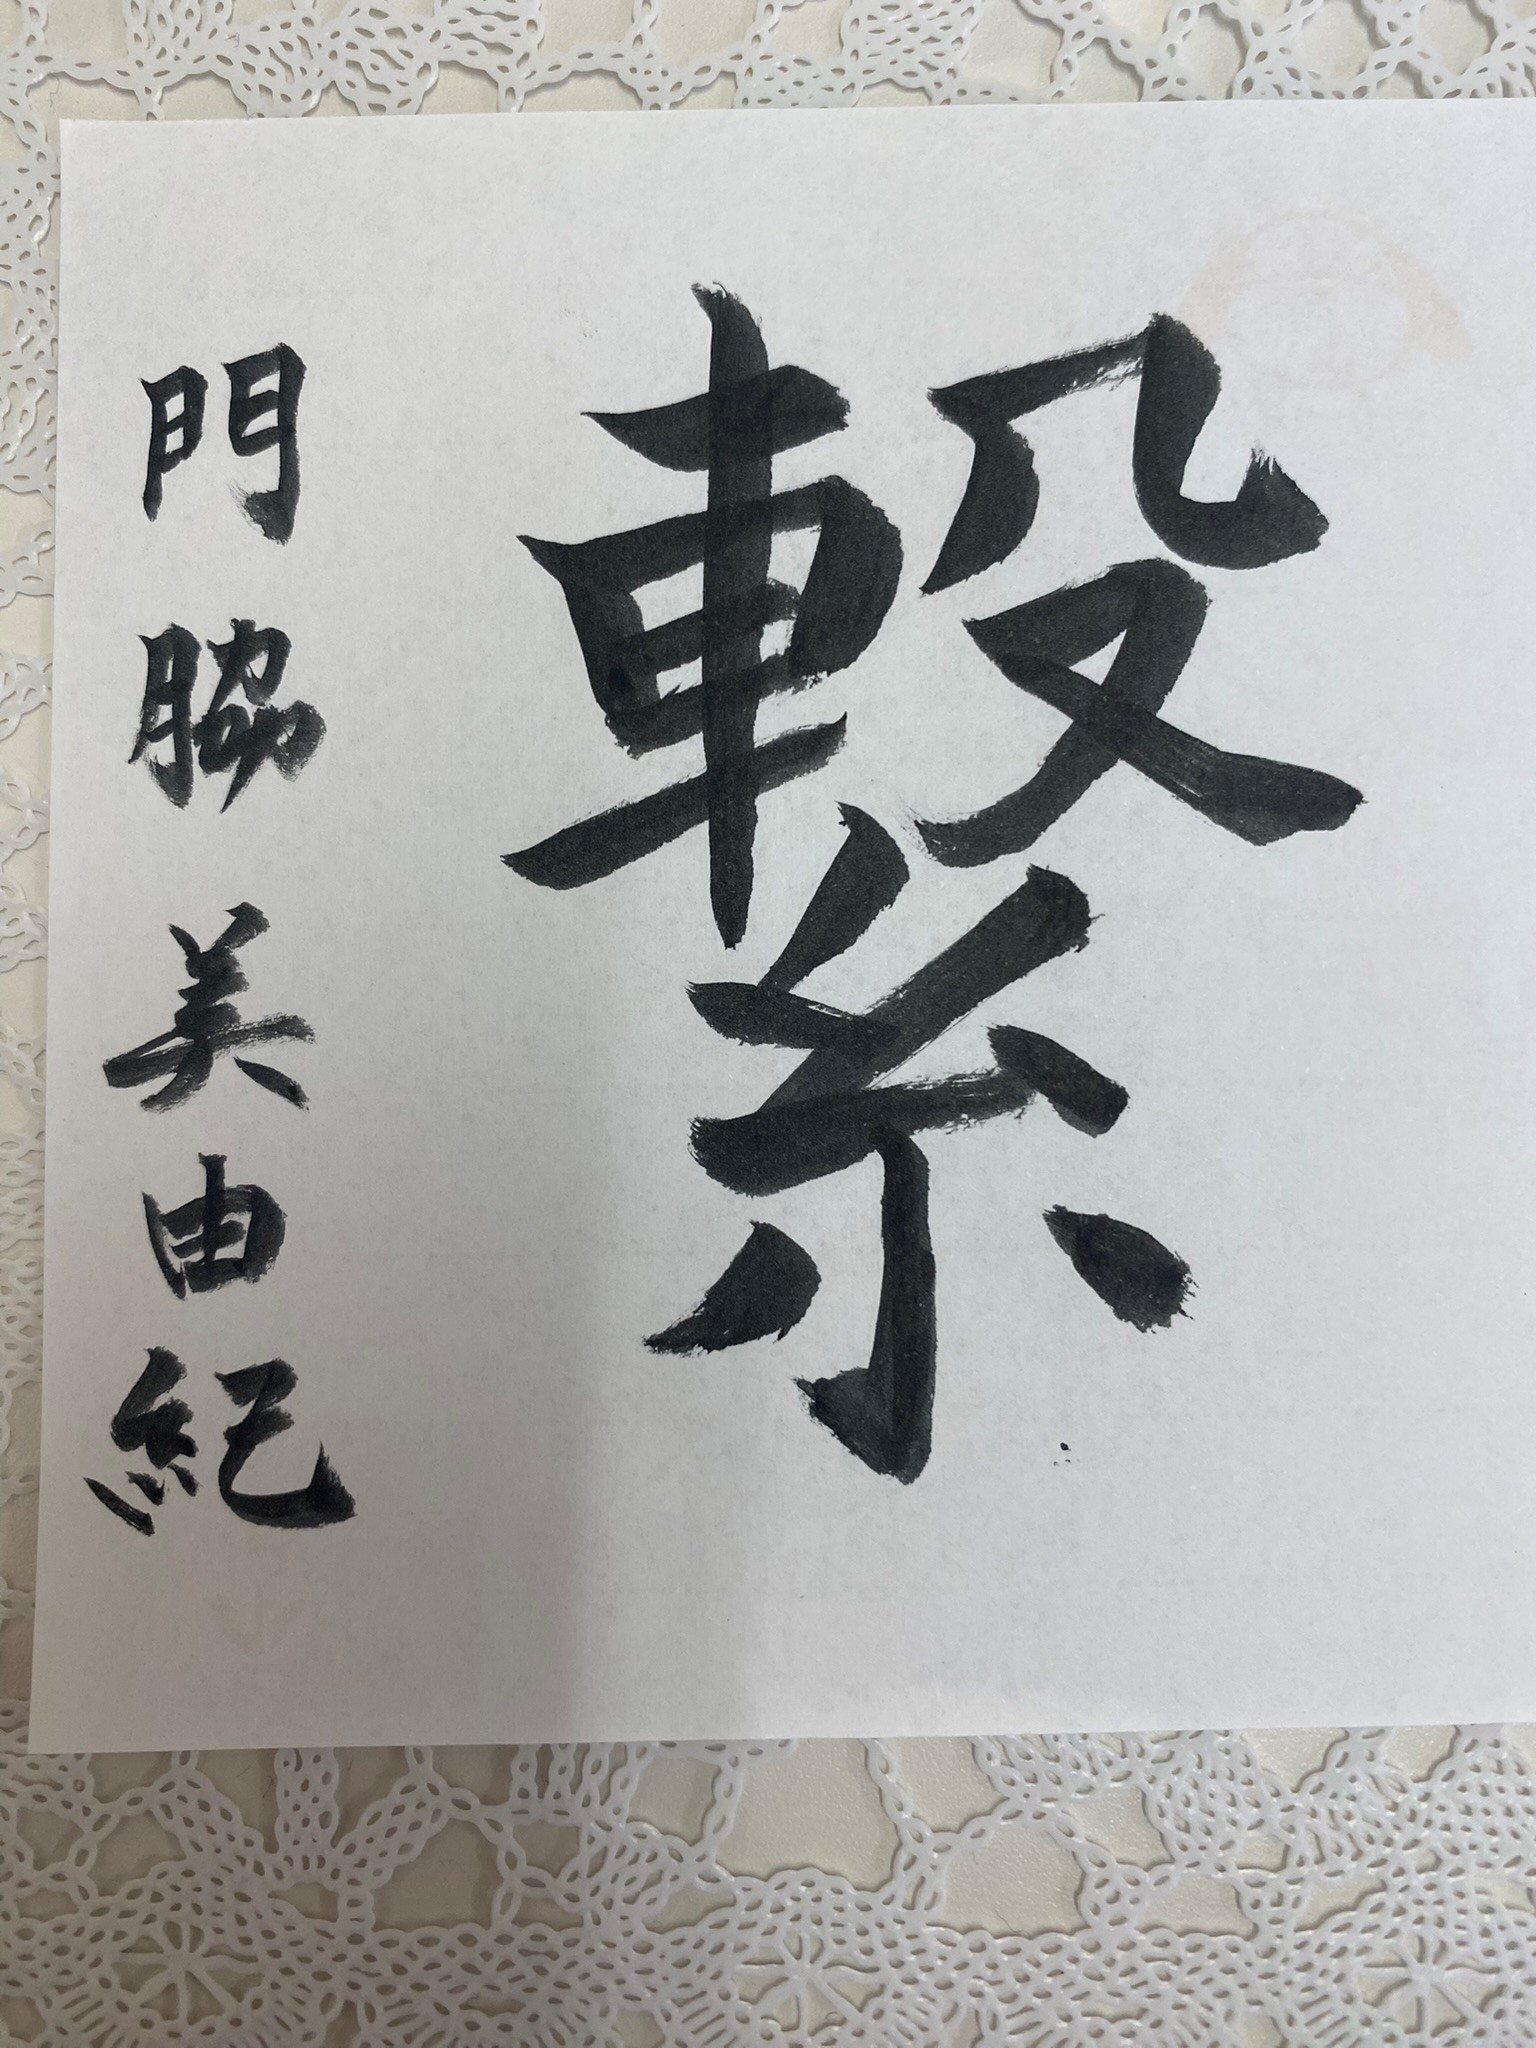 繋
門脇美由紀